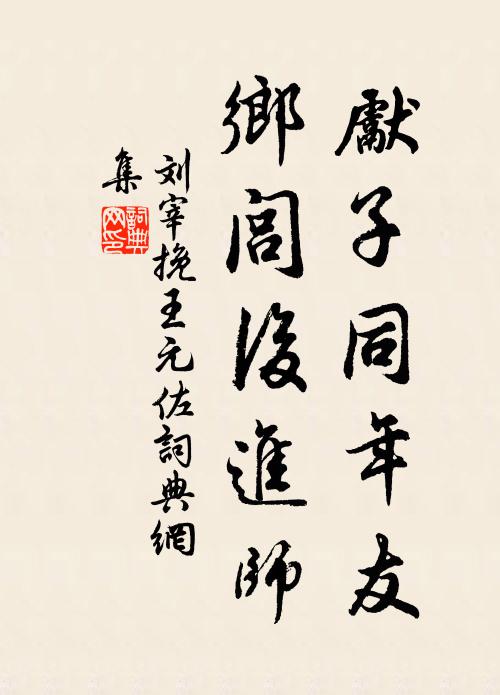 獻子同年友
鄉閭後進師
刘宰挽王元佐詞典網
集
詞典
网印